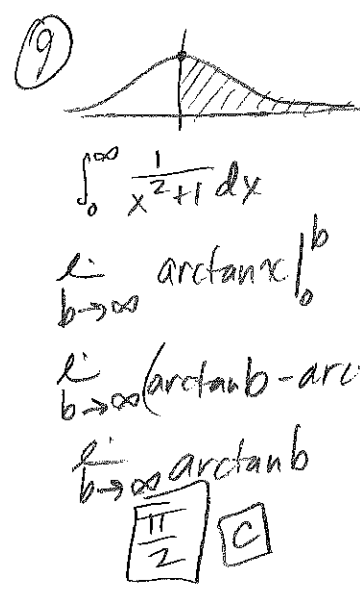 9
∫₀^∞ 1/(x²+1) dx
li b→∞ arctan x |₀^b
li b→∞ (arctan b - arc
li b→∞ arctan b
π/2 C